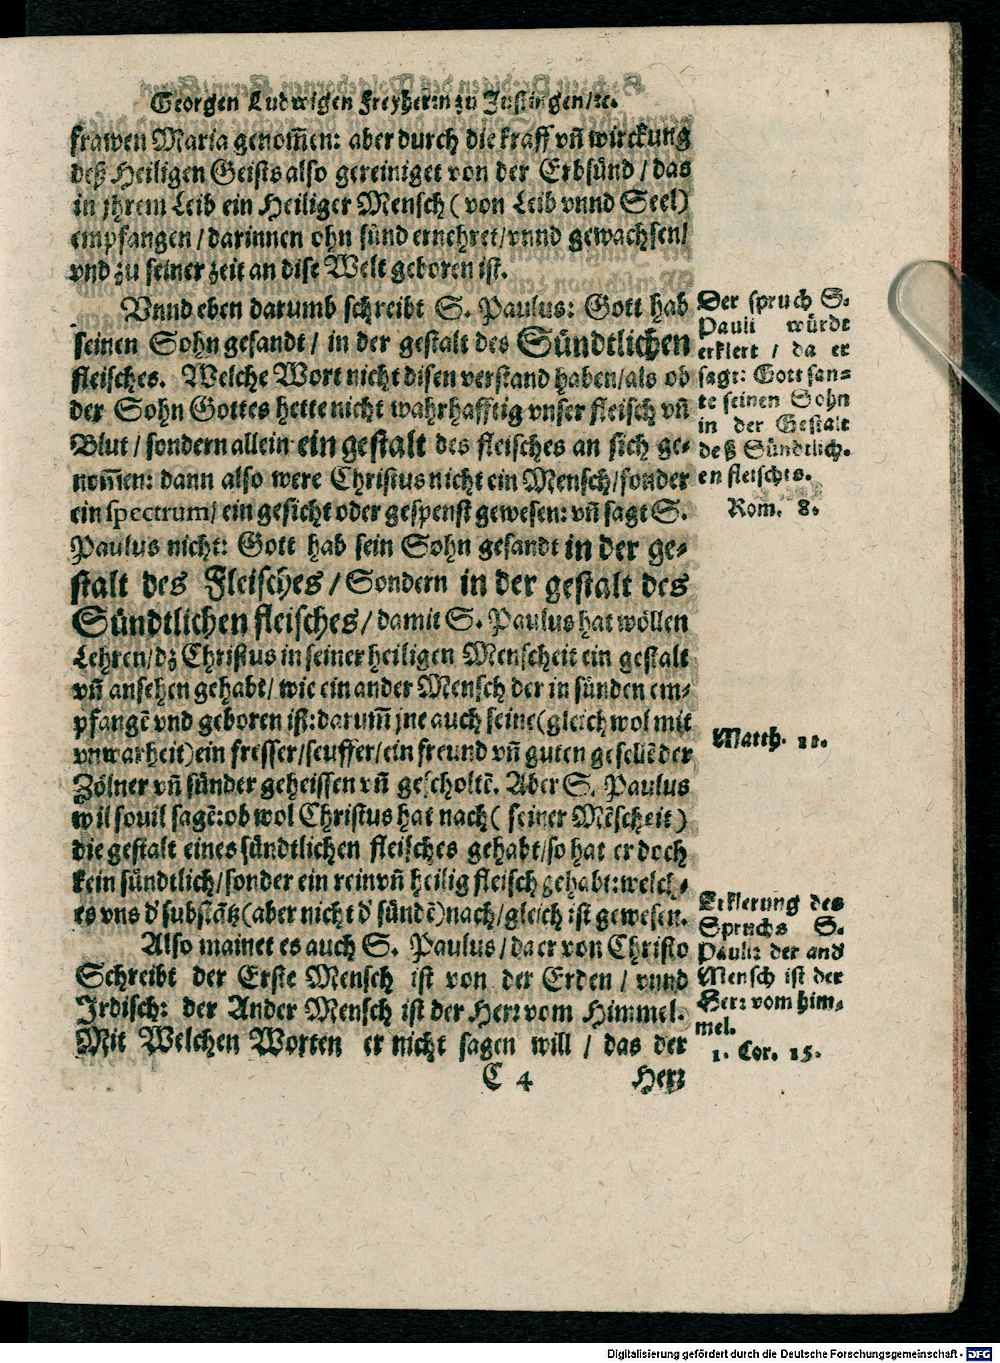 Georgen Ludwigen Freyherrn zu Justingen/ꝛc.
frawen Maria genom̃en: aber durch die krafft vñ wirckung
deß Heiligen Geists also gereiniget von der Erbsünd / das
in jhrem Leib ein Heiliger Mensch ( von Leib vnnd Seel)
empfangen / darinnen ohn sünd ernehret/ vnnd gewachsen/
vnd zu seiner zeit an dise Welt geboren ist.
Vnnd eben darumb schreibt S. Paulus: Gott hab
seinen Sohn gesandt / in der gestalt des Sündtlichen
fleisches. Welche Wort nicht disen verstand haben/als ob
der Sohn Gottes hette nicht wahrhafftig vnser fleisch vñ
Blut / sondern allein ein gestalt des fleisches an sich ge-
nom̃en: dann also were Christus nicht ein Mensch/sonder
ein spectrum/ ein gesicht oder gespenst gewesen: vñ sagt S.
Paulus nicht: Gott hab sein Sohn gesandt in der ge-
stalt des Fleisches / Sondern in der gestalt des
Sündtlichen fleisches / damit S. Paulus hat wöllen
Lehren/dz Christus in seiner heiligen Menscheit ein gestalt
vñ ansehen gehabt/ wie ein ander Mensch der in sünden em-
pfangẽ vnd geboren ist: darum̃ jne auch seine (gleich wol mit
vnwarheit) ein fresser/ seuffer/ ein freund vñ guten gesellẽ der
Zölner vñ sünder geheissen vñ gescholtẽ. Aber S. Paulus
wil souil sagẽ: ob wol Christus hat nach ( seiner Mẽscheit )
die gestalt eines sündtlichen fleisches gehabt/ so hat er doch
kein sündtlich/ sonder ein rein vñ heilig fleisch gehabt: welch-
es vns d' substãtz (aber nicht d' sündẽ) nach/ gleich ist gewesen.
Also mainet es auch S. Paulus / da er von Christo
Schreibt der Erste Mensch ist von der Erden / vnnd
Irdisch: der Ander Mensch ist der Herr vom Himmel.
Mit Welchen Worten er nicht sagen will / das der
C 4 Herr
Der spruch S.
Pauli würdt
erklert / da er
sagt: Gott san-
te seinen Sohn
in der Gestalt
deß Sündtlich-
en fleisches.
Rom. 8.
Matth. 11.
Erklerung des
Spruchs S.
Pauli: der and'
Mensch ist der
Herr vom him-
mel.
1. Cor. 15.
Digitalisierung gefördert durch die Deutsche Forschungsgemeinschaft - DFG